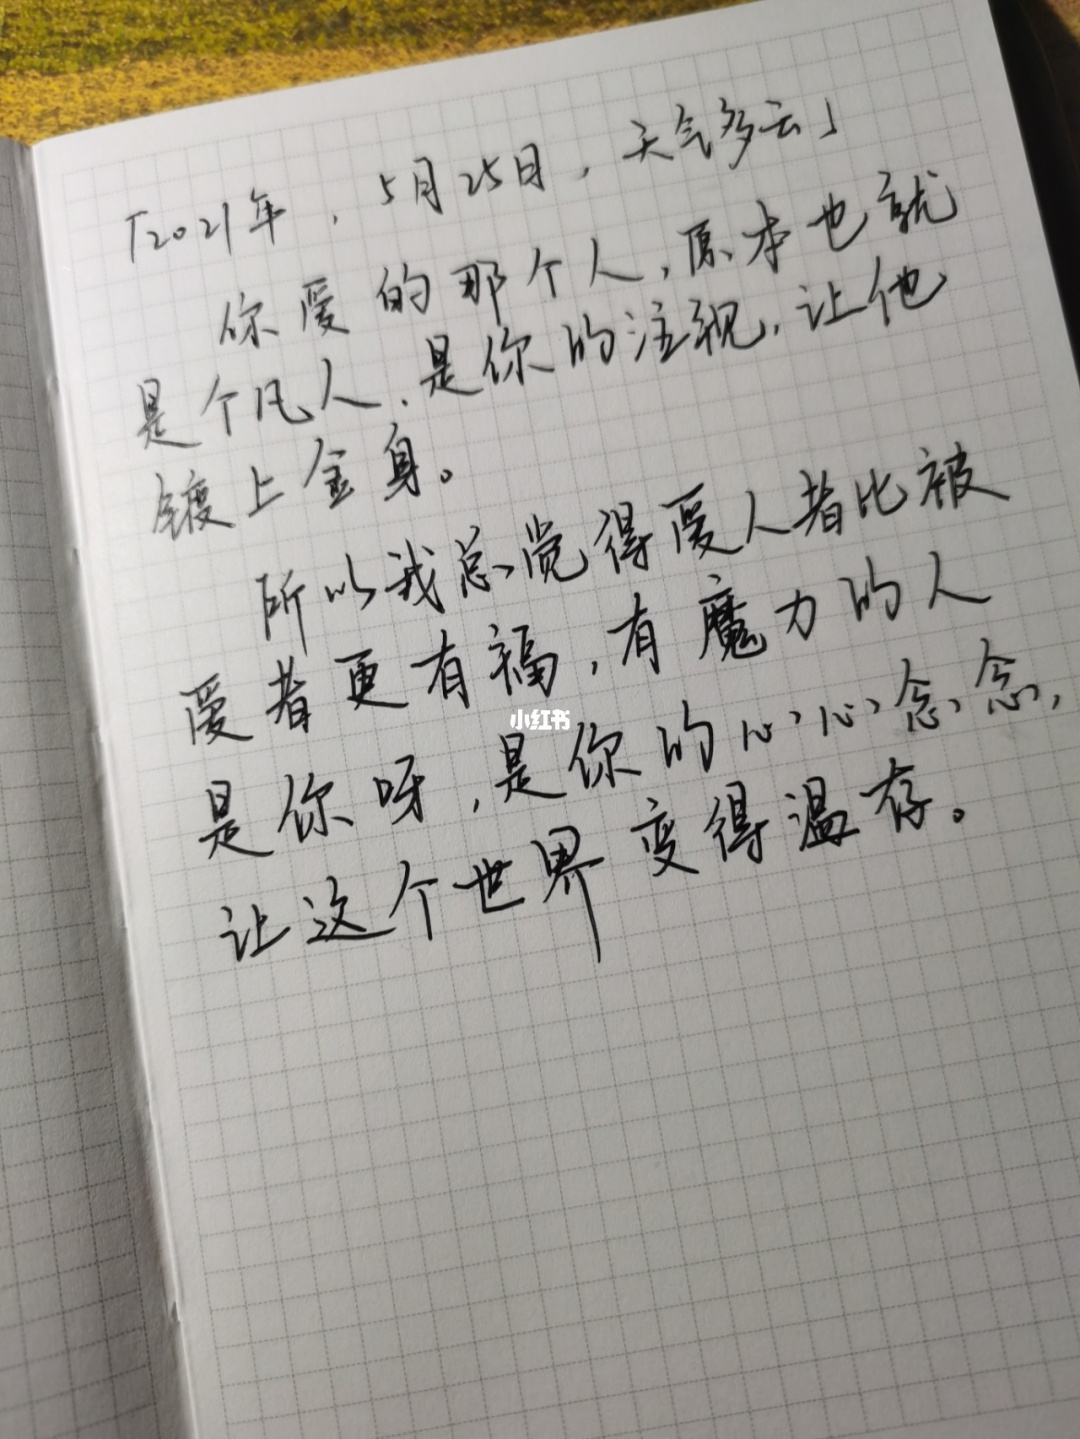 「2021年，5月25日，天气多云」
你爱的那个人，原本也就
是个凡人，是你的注视，让他
镀上金身。
所以我总觉得爱人者比被
爱者更有福，有魔力的人
是你呀，是你的心心念念，
让这个世界变得温存。
小红书